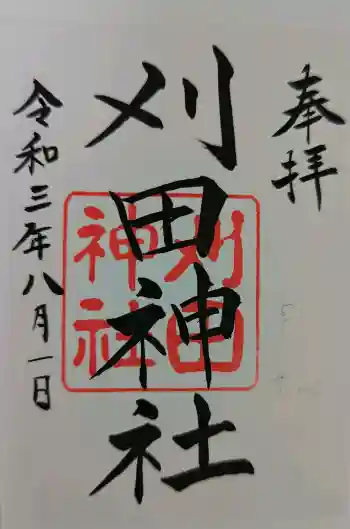 奉拝
刈田神社
令和三年八月一日
則田
神社